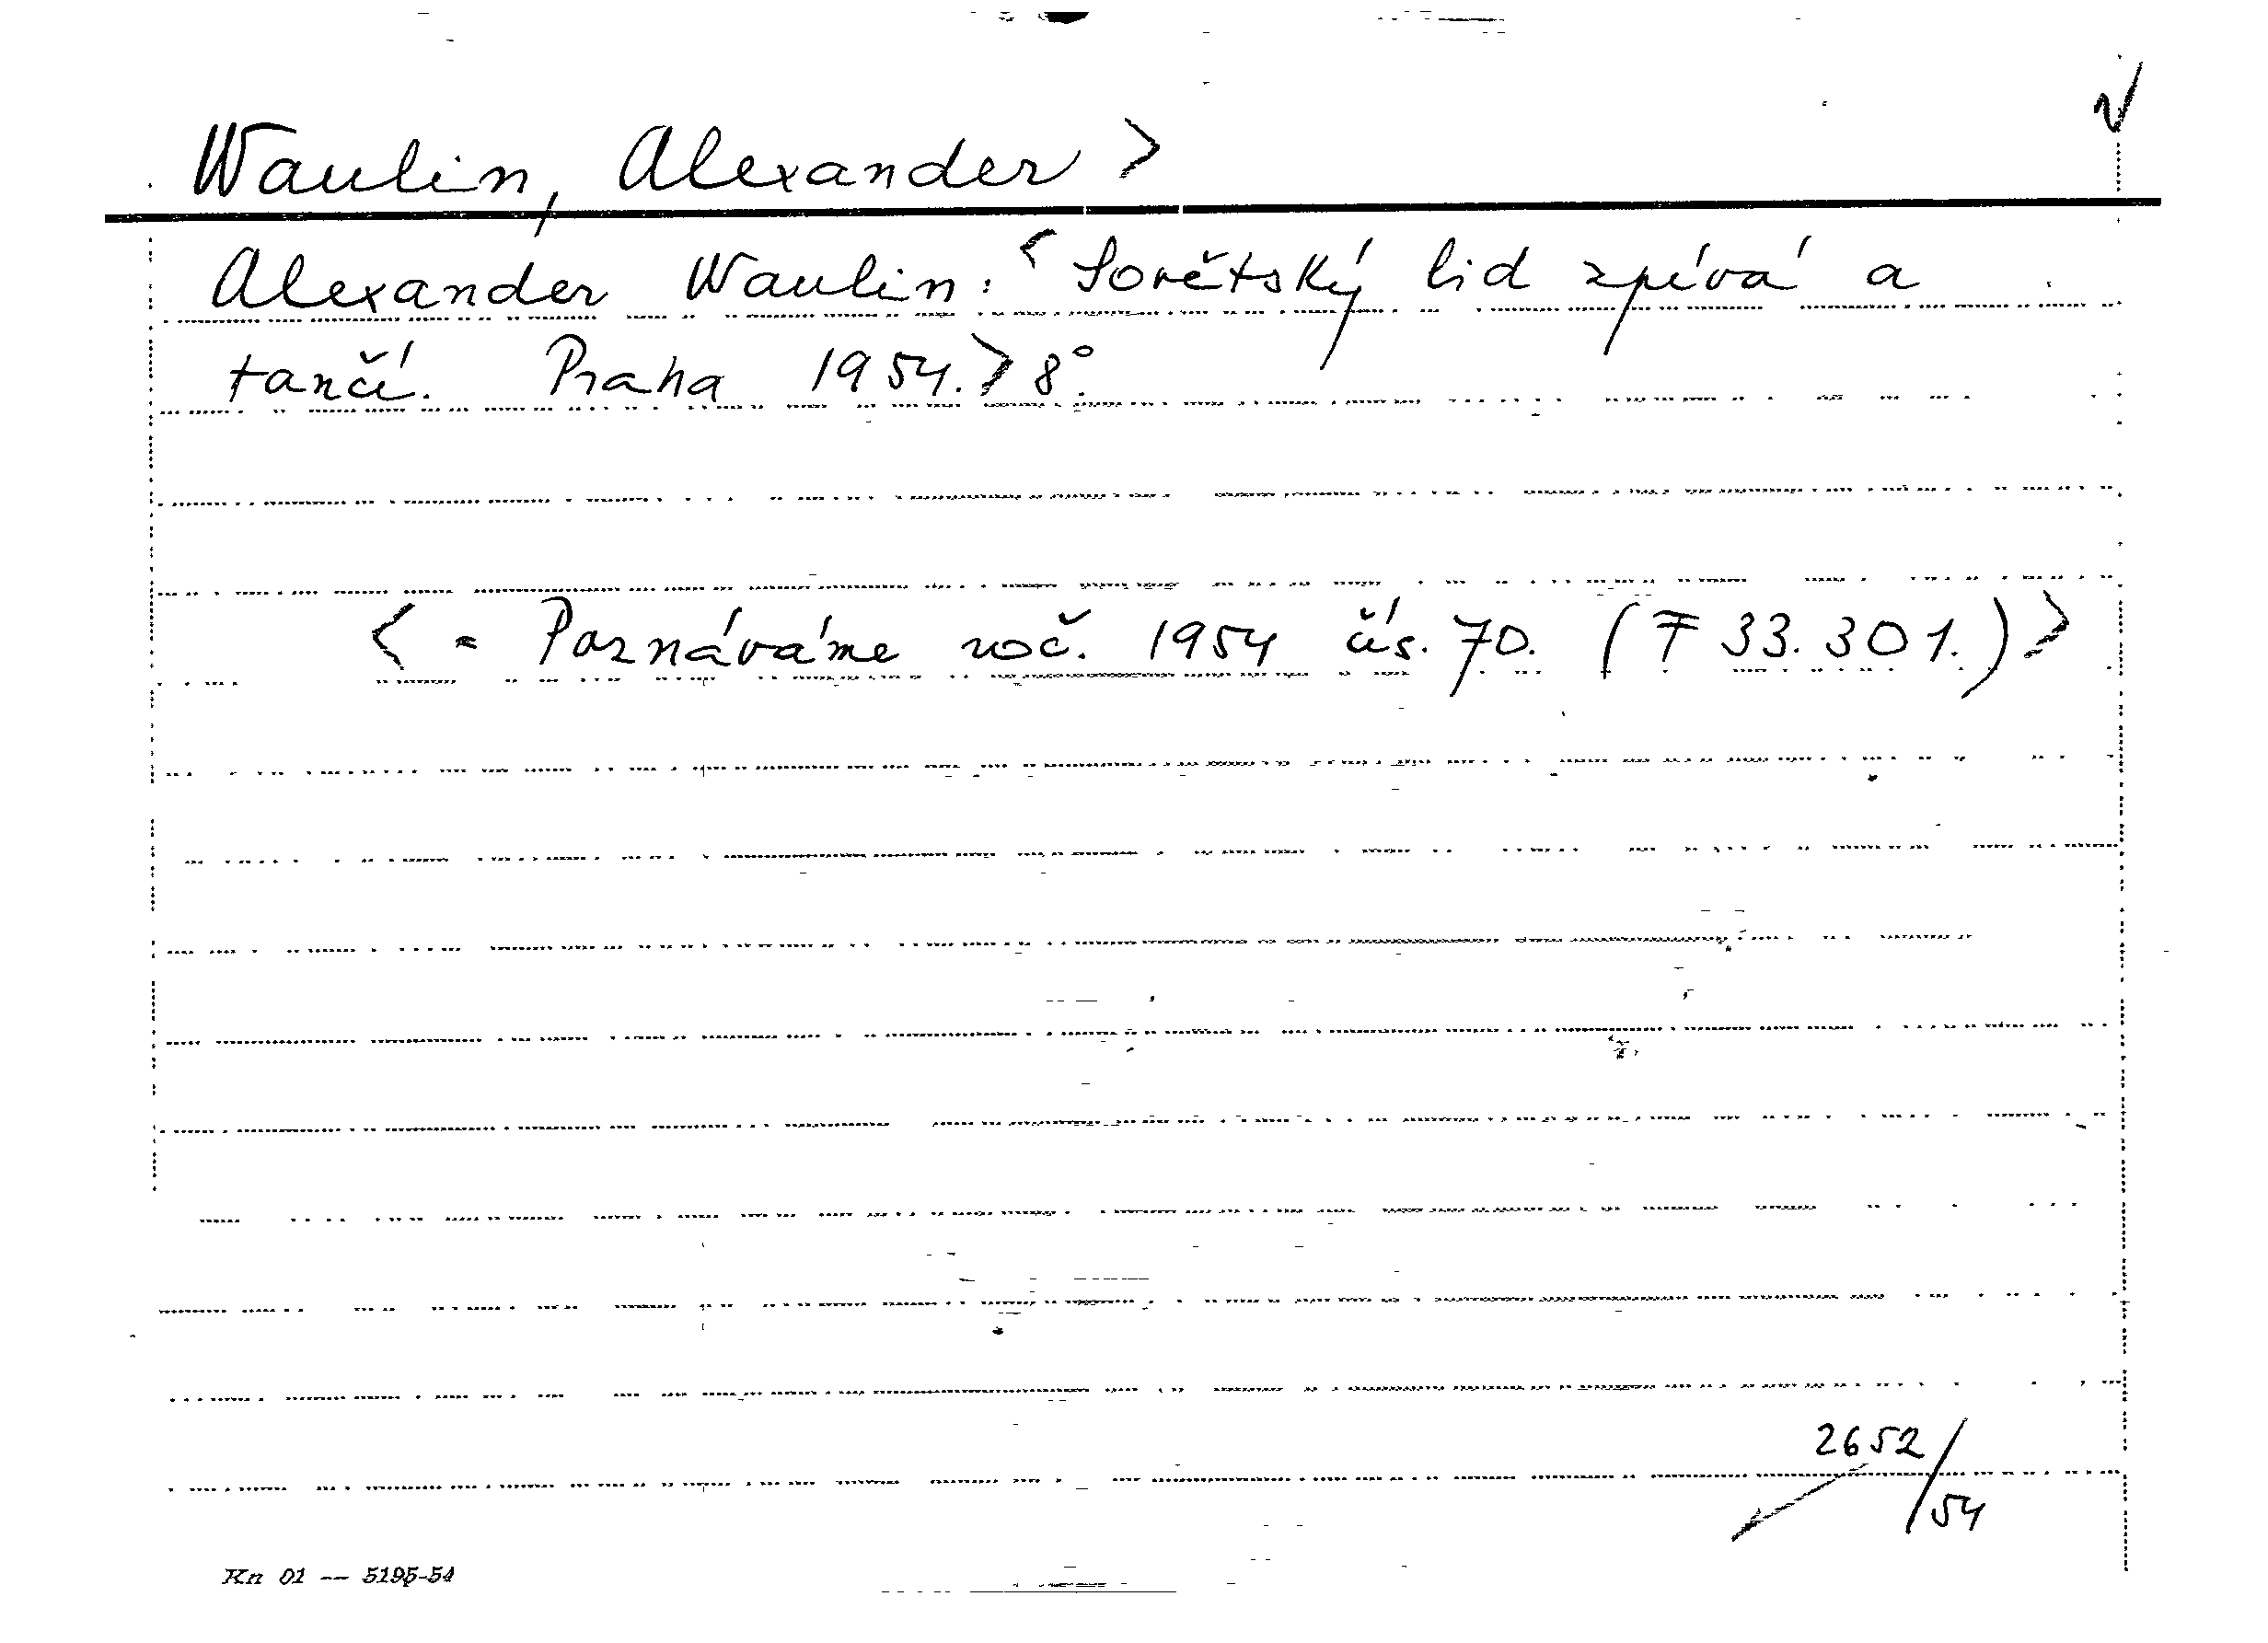 Waulin, Alexander >
Alexander Waulin: < Sovětský lid zpívá a
tančí. Praha 1954. > 8°.
< = Poznáváme roč. 1954 čís. 70. (F 33.301.) >
2652/54
Kn 01 — 5195-54